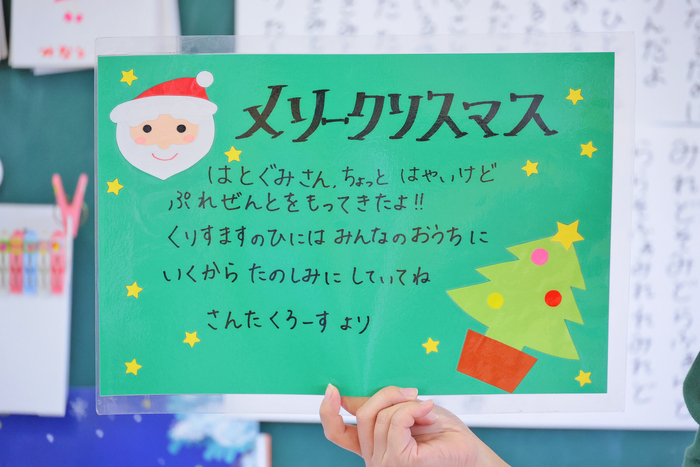 メリークリスマス
はとぐみさん、ちょっと はやいけど
ぷれぜんとをもってきたよ!!
くりすますのひには みんなのおうちに
いくから たのしみに していてね
さんたくろーすより